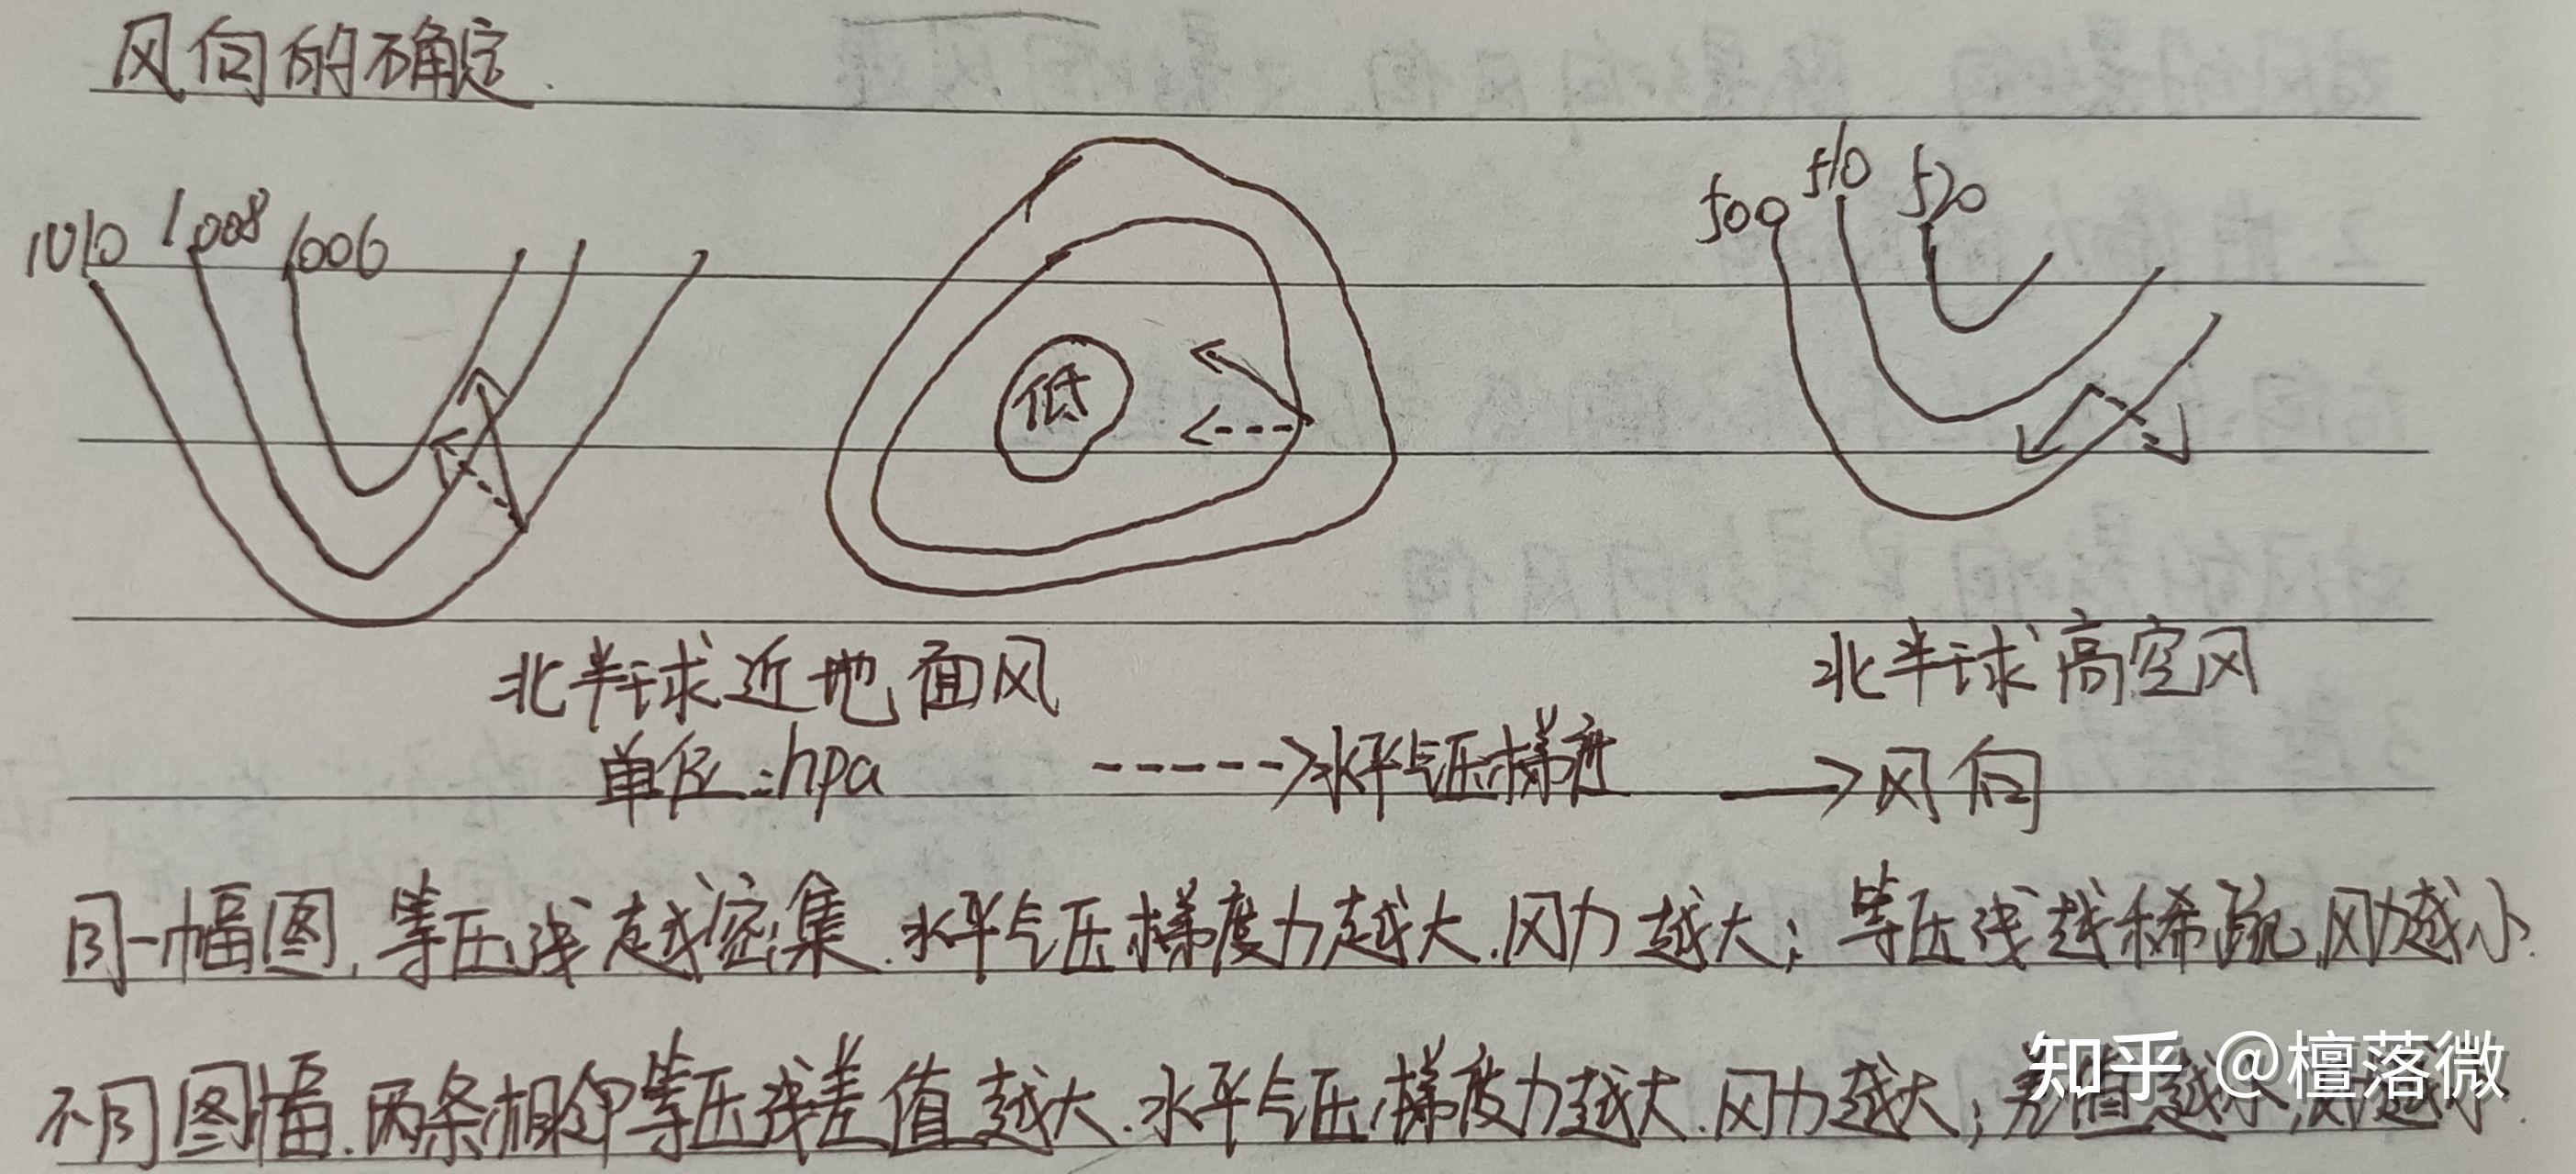 风向的确定.
1010 1008 1006
500 510 520
低
北半球近地面风
北半球高空风
单位:hpa ----->水平气压梯度 →风向
同一幅图.等压线越密集.水平气压梯度力越大.风力越大;等压线越稀疏,风力越小.
不同图幅.两条相邻等压线差值越大.水平气压梯度力越大.风力越大;差值越小,风力越小.
知乎 @檀落微